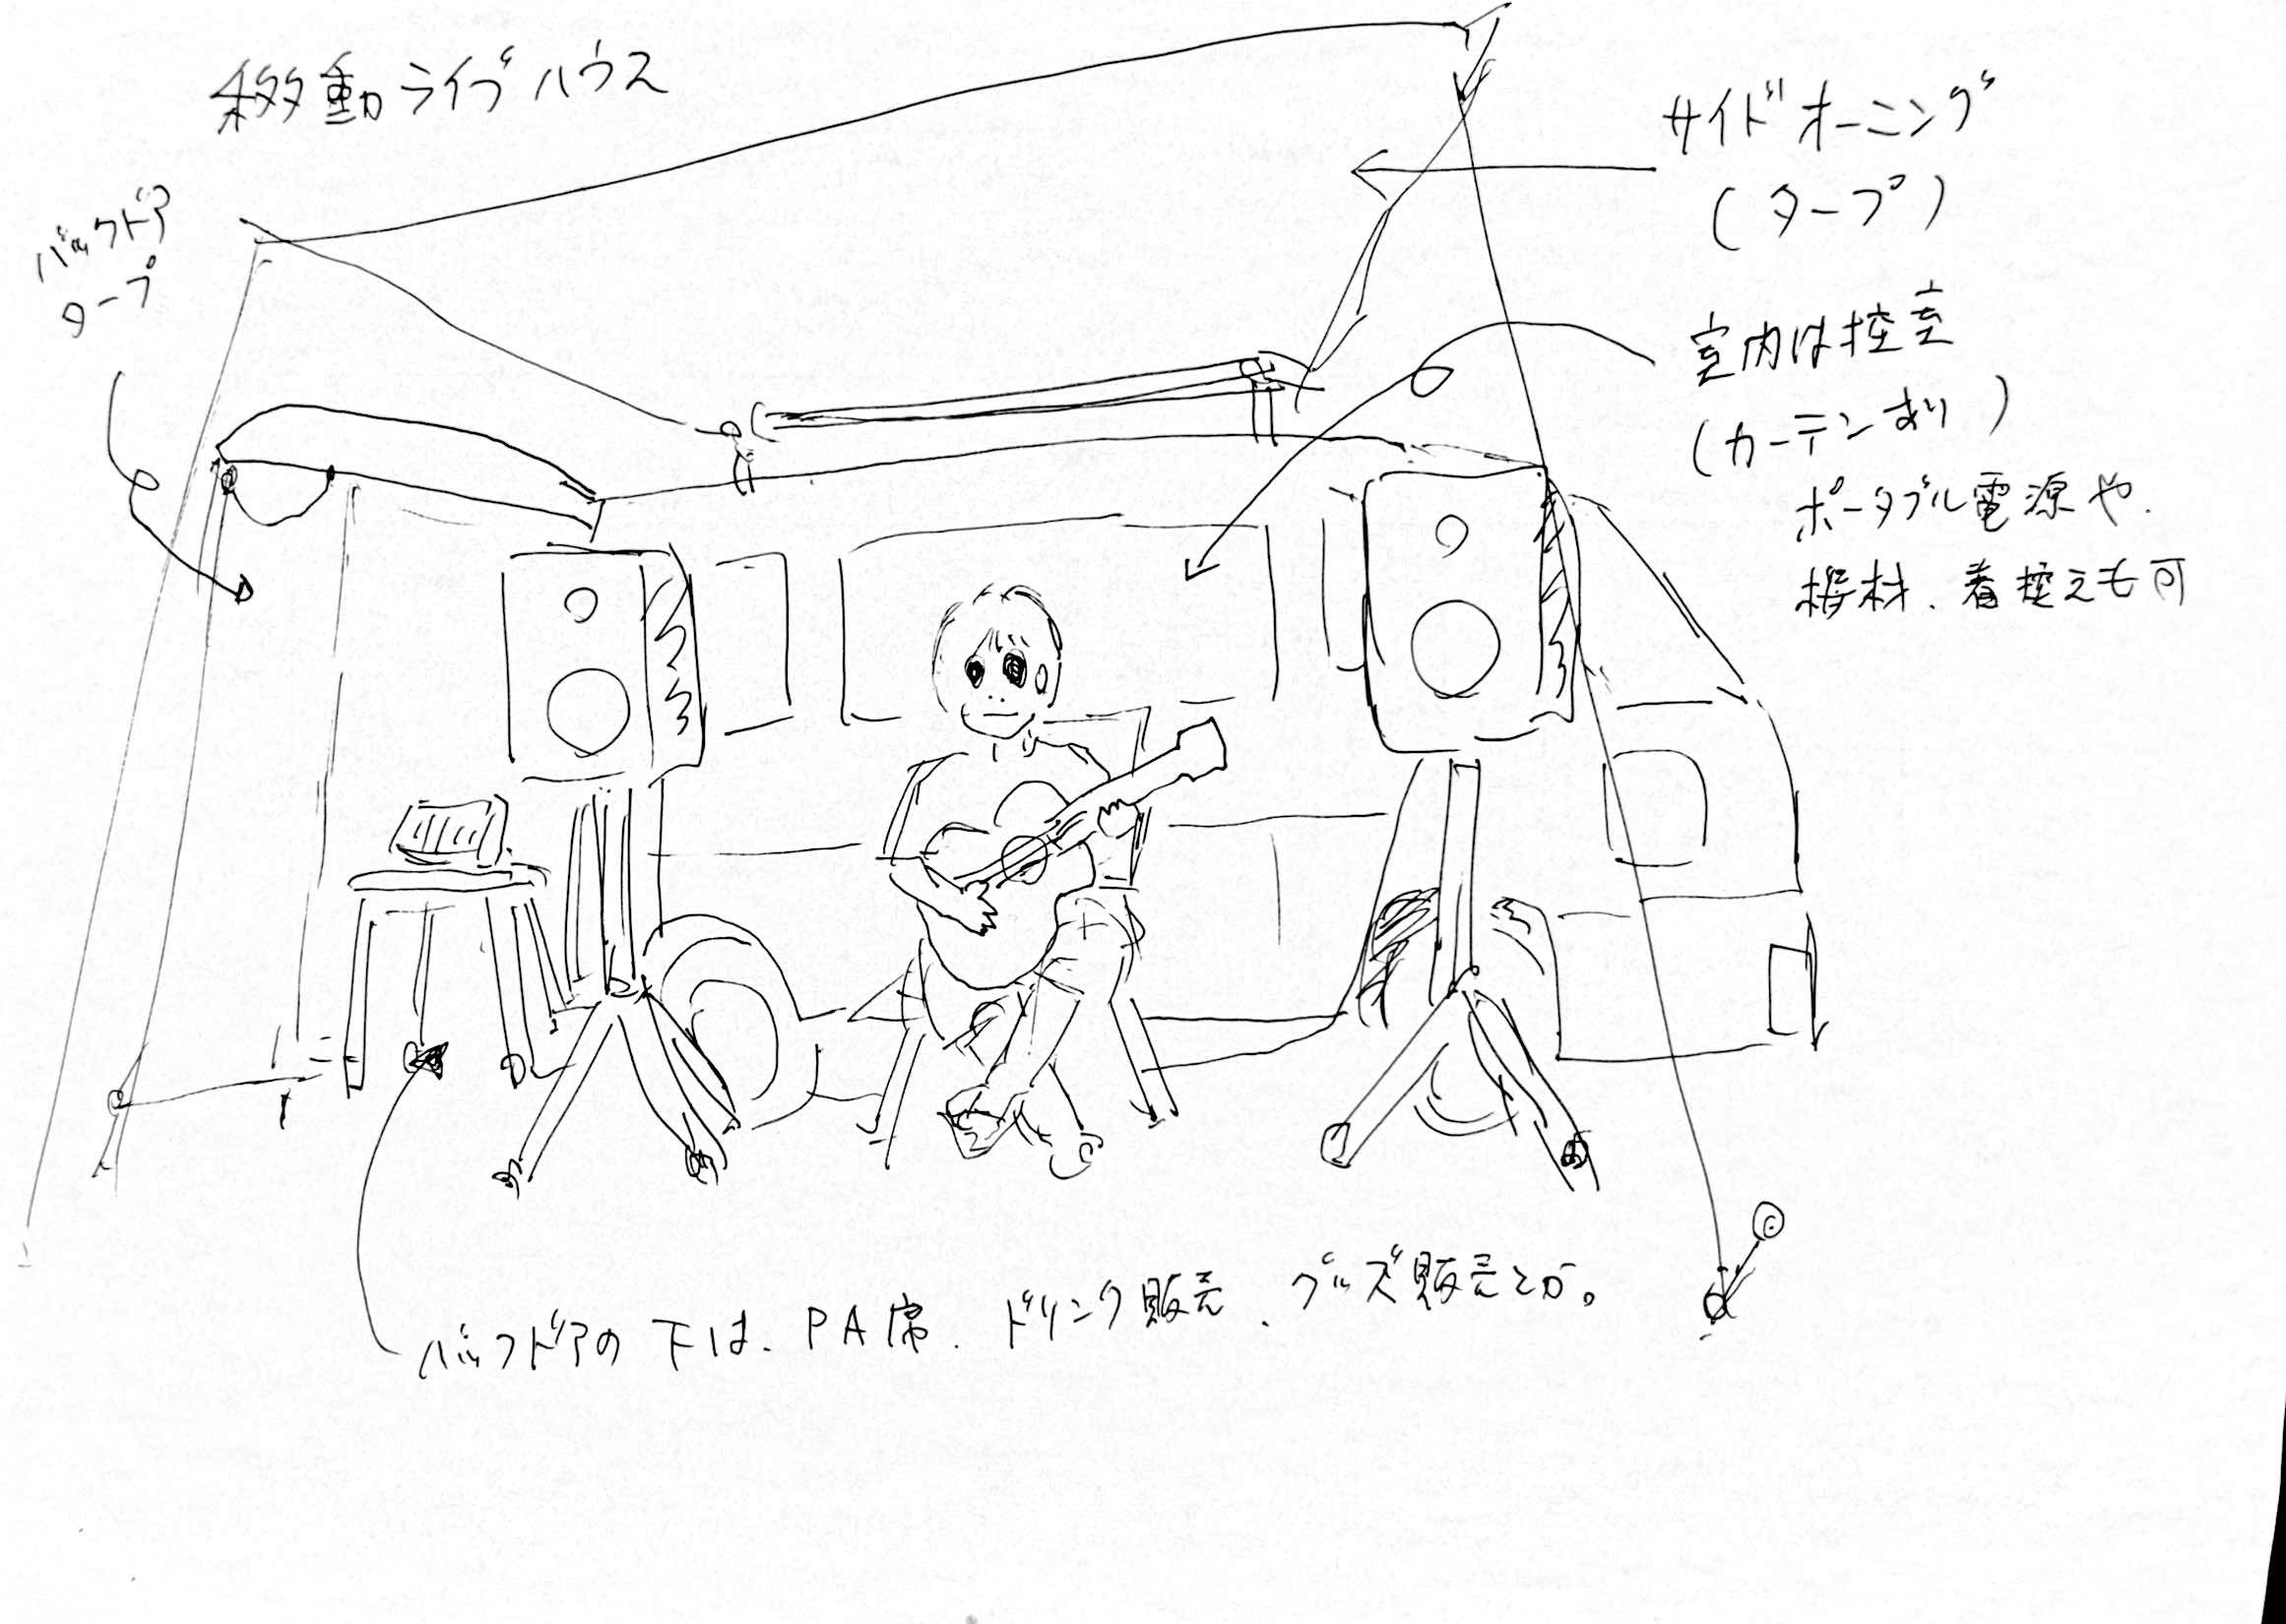 移動ライブハウス
サイドオーニング
(タープ)
バックドア
タープ
室内は控室
(カーテンあり)
ポータブル電源や.
機材、着控えも可
バックドアの下は、PA席、ドリンク販売、グッズ販売とか。